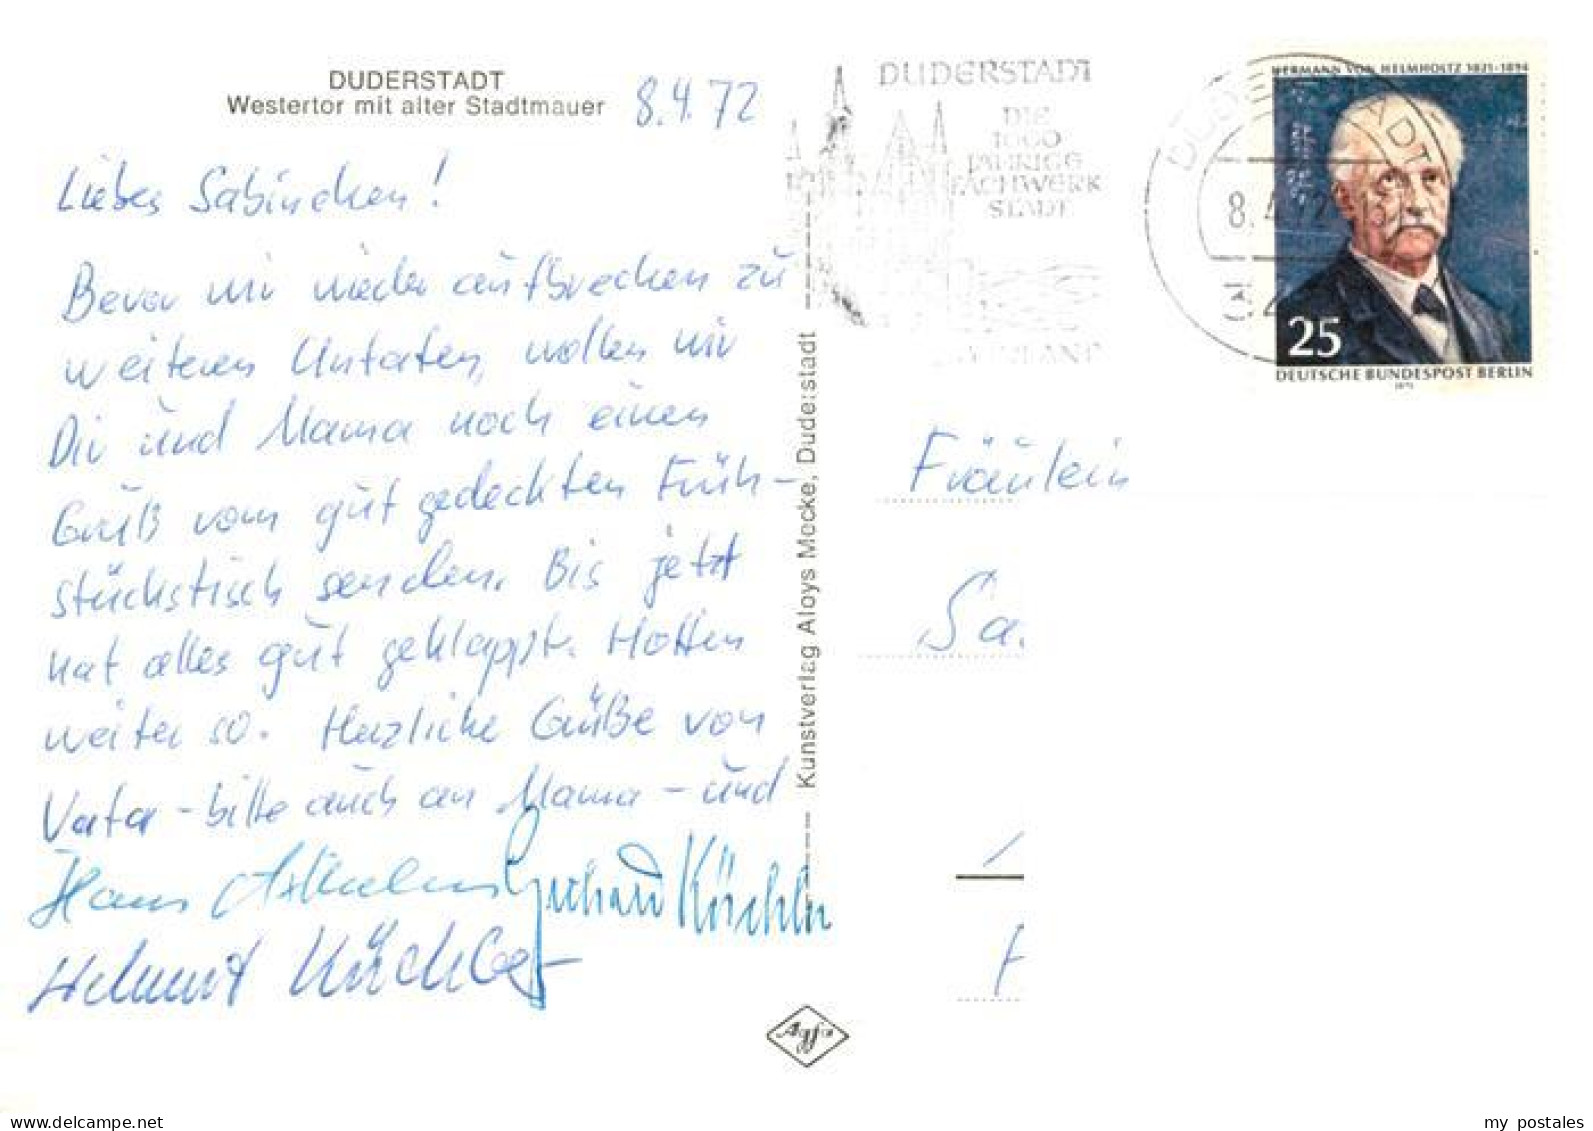 DUDERSTADT
Westertor mit alter Stadtmauer
8.4.72
Liebes Sabinchen!
Bevor wir wieder aufbrechen zu
weiteren Untaten, wollen wir
Dir und Mama noch einen
Gruß vom gut gedeckten Früh-
stückstisch senden. Bis jetzt
hat alles gut geklappt. Hoffen
weiter so. Herzliche Grüße von
Vater - bitte auch an Mama - und
Hans Wilhelm Gerhard Küchler
Helmut Küchler
Kunstverlag Aloys Mecke, Duderstadt
Agfa
DUDERSTADT
DIE
1000
JÄHRIGE
FACHWERK
STADT
DUDERSTADT
8.4.72
HERMANN VON HELMHOLTZ 1821-1894
25
DEUTSCHE BUNDESPOST BERLIN
1971
Fräulein
Sa
my postales